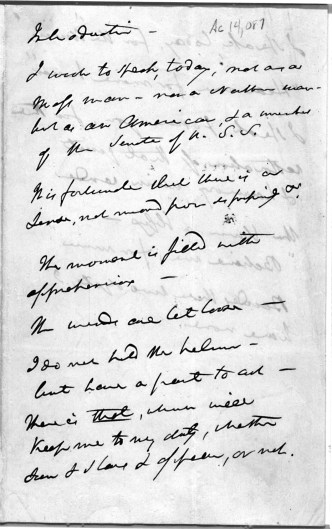 Ac 14,087
Introduction -
I wish to speak, today; not as a
Mass man - nor a Northern man -
but as an American, & a member
of the Senate of U. S. S.
It is fortunate that there is a
Senate, not moved from its &c.
The moment is filled with
apprehension -
The winds are let loose -
I do not hold the helm -
but have a part to act -
There is that, which will
keep me to my duty, whether
Sun & stars appear, or not.